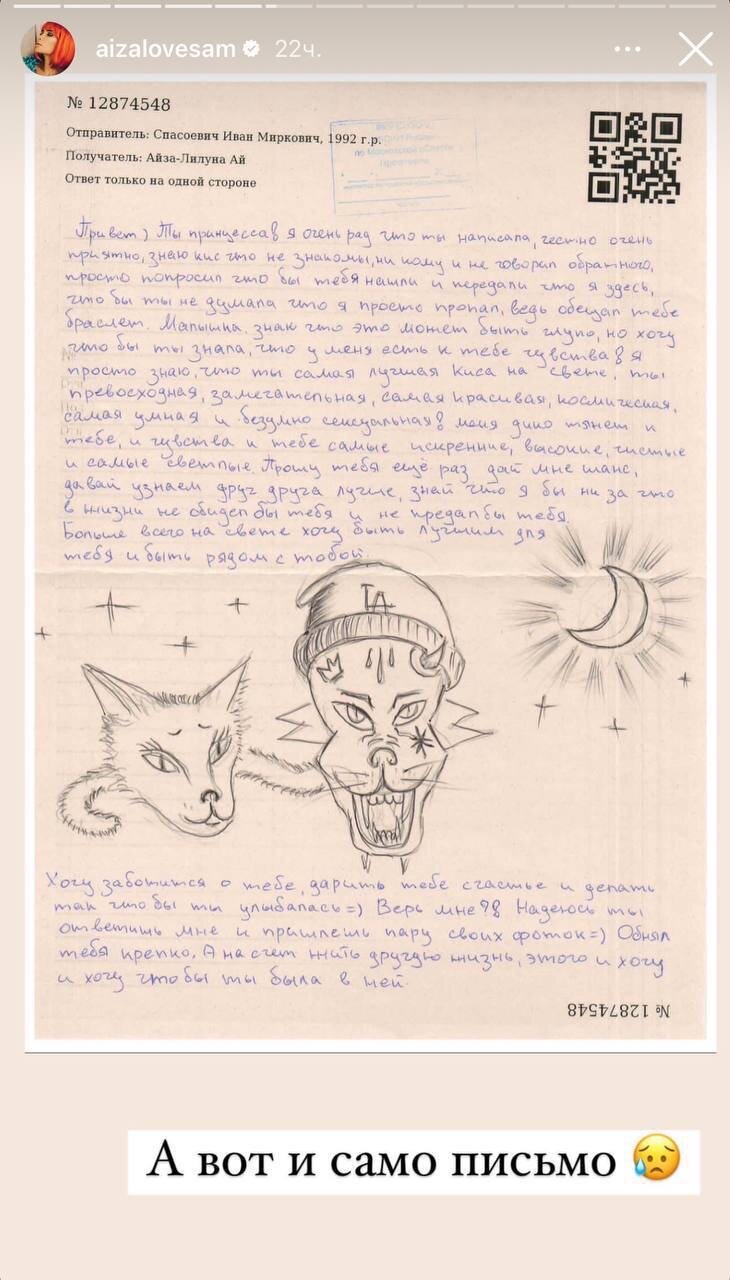 aizalovesam 22ч.
№ 12874548
Отправитель: Спасоевич Иван Миркович, 1992 г.р.
Получатель: Айза-Лилуна Ай
Ответ только на одной стороне
Привет) Ты принцесса! я очень рад что ты написала, честно очень
приятно, знаю кис что не знакомы, ни кому и не говорил обратного,
просто попросил что бы тебя нашли и передали что я здесь,
что бы ты не думала что я просто пропал, ведь обещал тебе
браслет. Малышка, знаю что это может быть глупо, но хочу
что бы ты знала, что у меня есть к тебе чувства! я
просто знаю, что ты самая лучшая киса на свете, ты
превосходная, замечательная, самая красивая, космическая,
самая умная и безумно сексуальная! меня дико тянет к
тебе, и чувства к тебе самые искренние, высокие, чистые
и самые светлые. Прошу тебя ещё раз дай мне шанс,
давай узнаем друг друга лучше, знай что я бы ни за что
в жизни не обидел бы тебя и не предал бы тебя.
Больше всего на свете хочу быть лучшим для
тебя и быть рядом с тобой.
LA
Хочу заботится о тебе, дарить тебе счастье и делать
так что бы ты улыбалась=) Верь мне?! Надеюсь ты
ответишь мне и пришлёшь пару своих фоток=) Обнял
тебя крепко. А на счет жить другую жизнь, этого и хочу
и хочу что бы ты была в ней.
№ 12874548
А вот и само письмо